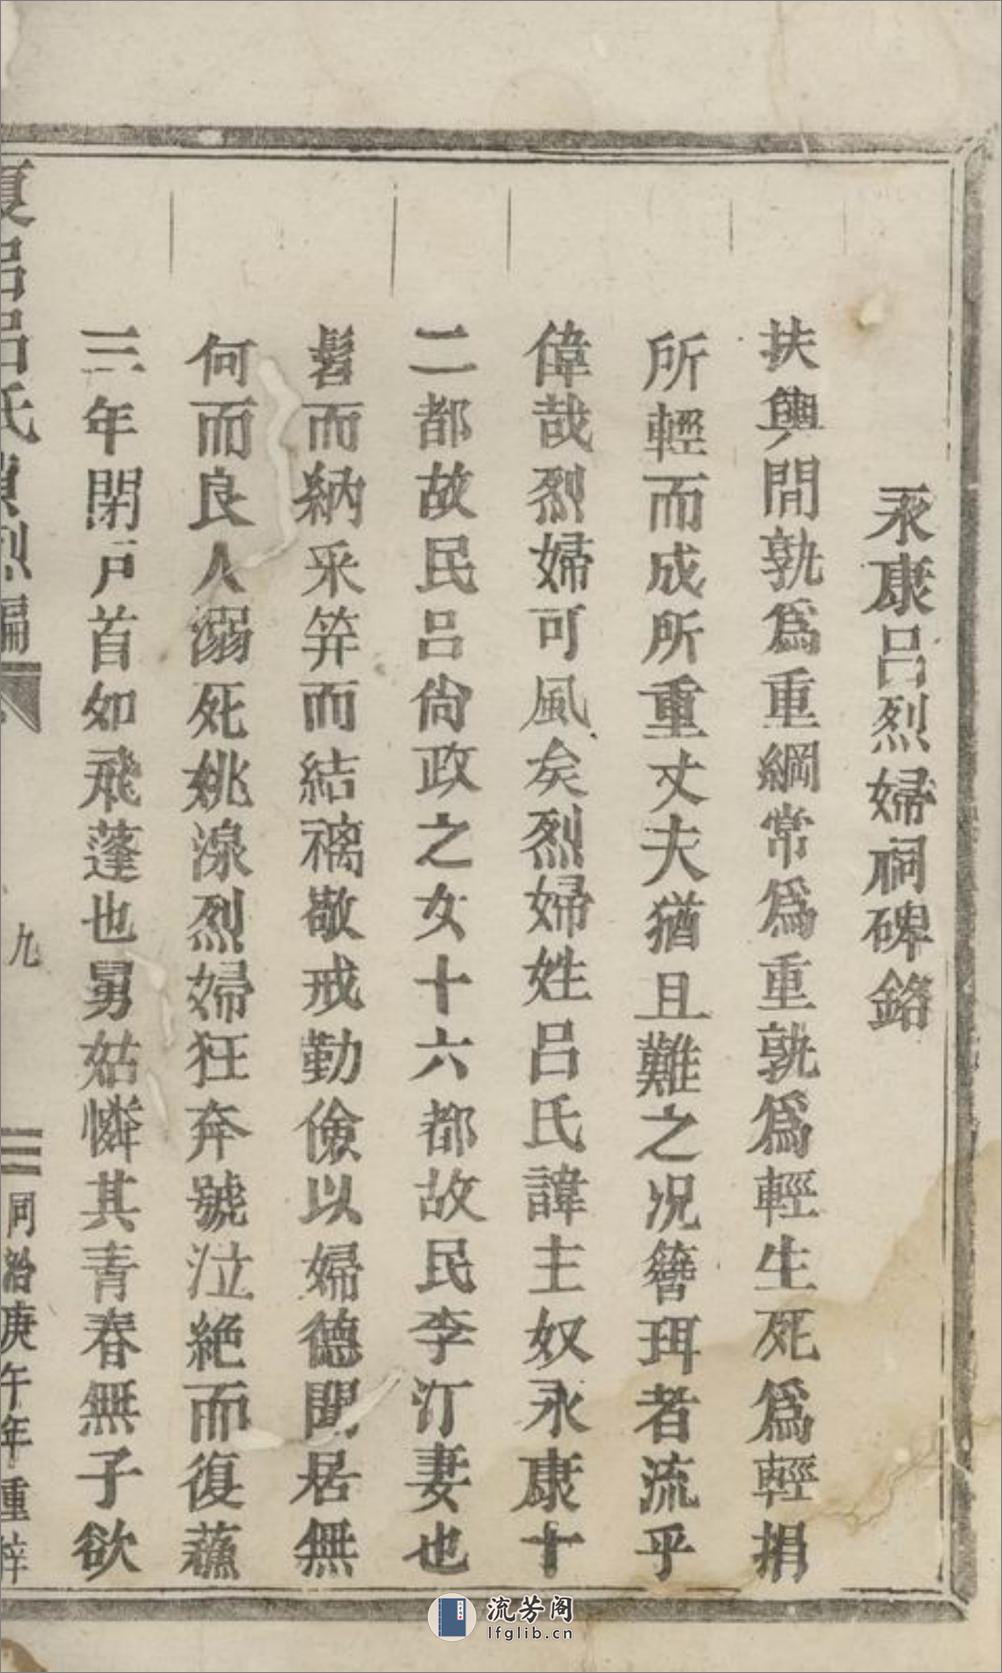 永康呂烈婦祠碑銘
扶輿間孰爲重綱常爲重孰爲輕生死爲輕捐
所輕而成所重丈夫猶且難之况簪珥者流乎
偉哉烈婦可風矣烈婦姓呂氏諱主奴永康十
二都故民呂尙政之女十六都故民李汀妻也
髫而納采笄而結褵敬戒勤儉以婦德聞居無
何而良人溺死姚湶烈婦狂奔號泣絶而復蘇
三年閉戸首如飛蓬也舅姑憐其青春無子欲
呂氏貞烈編
九
同治庚午年重梓
流芳阁
lfglib.cn